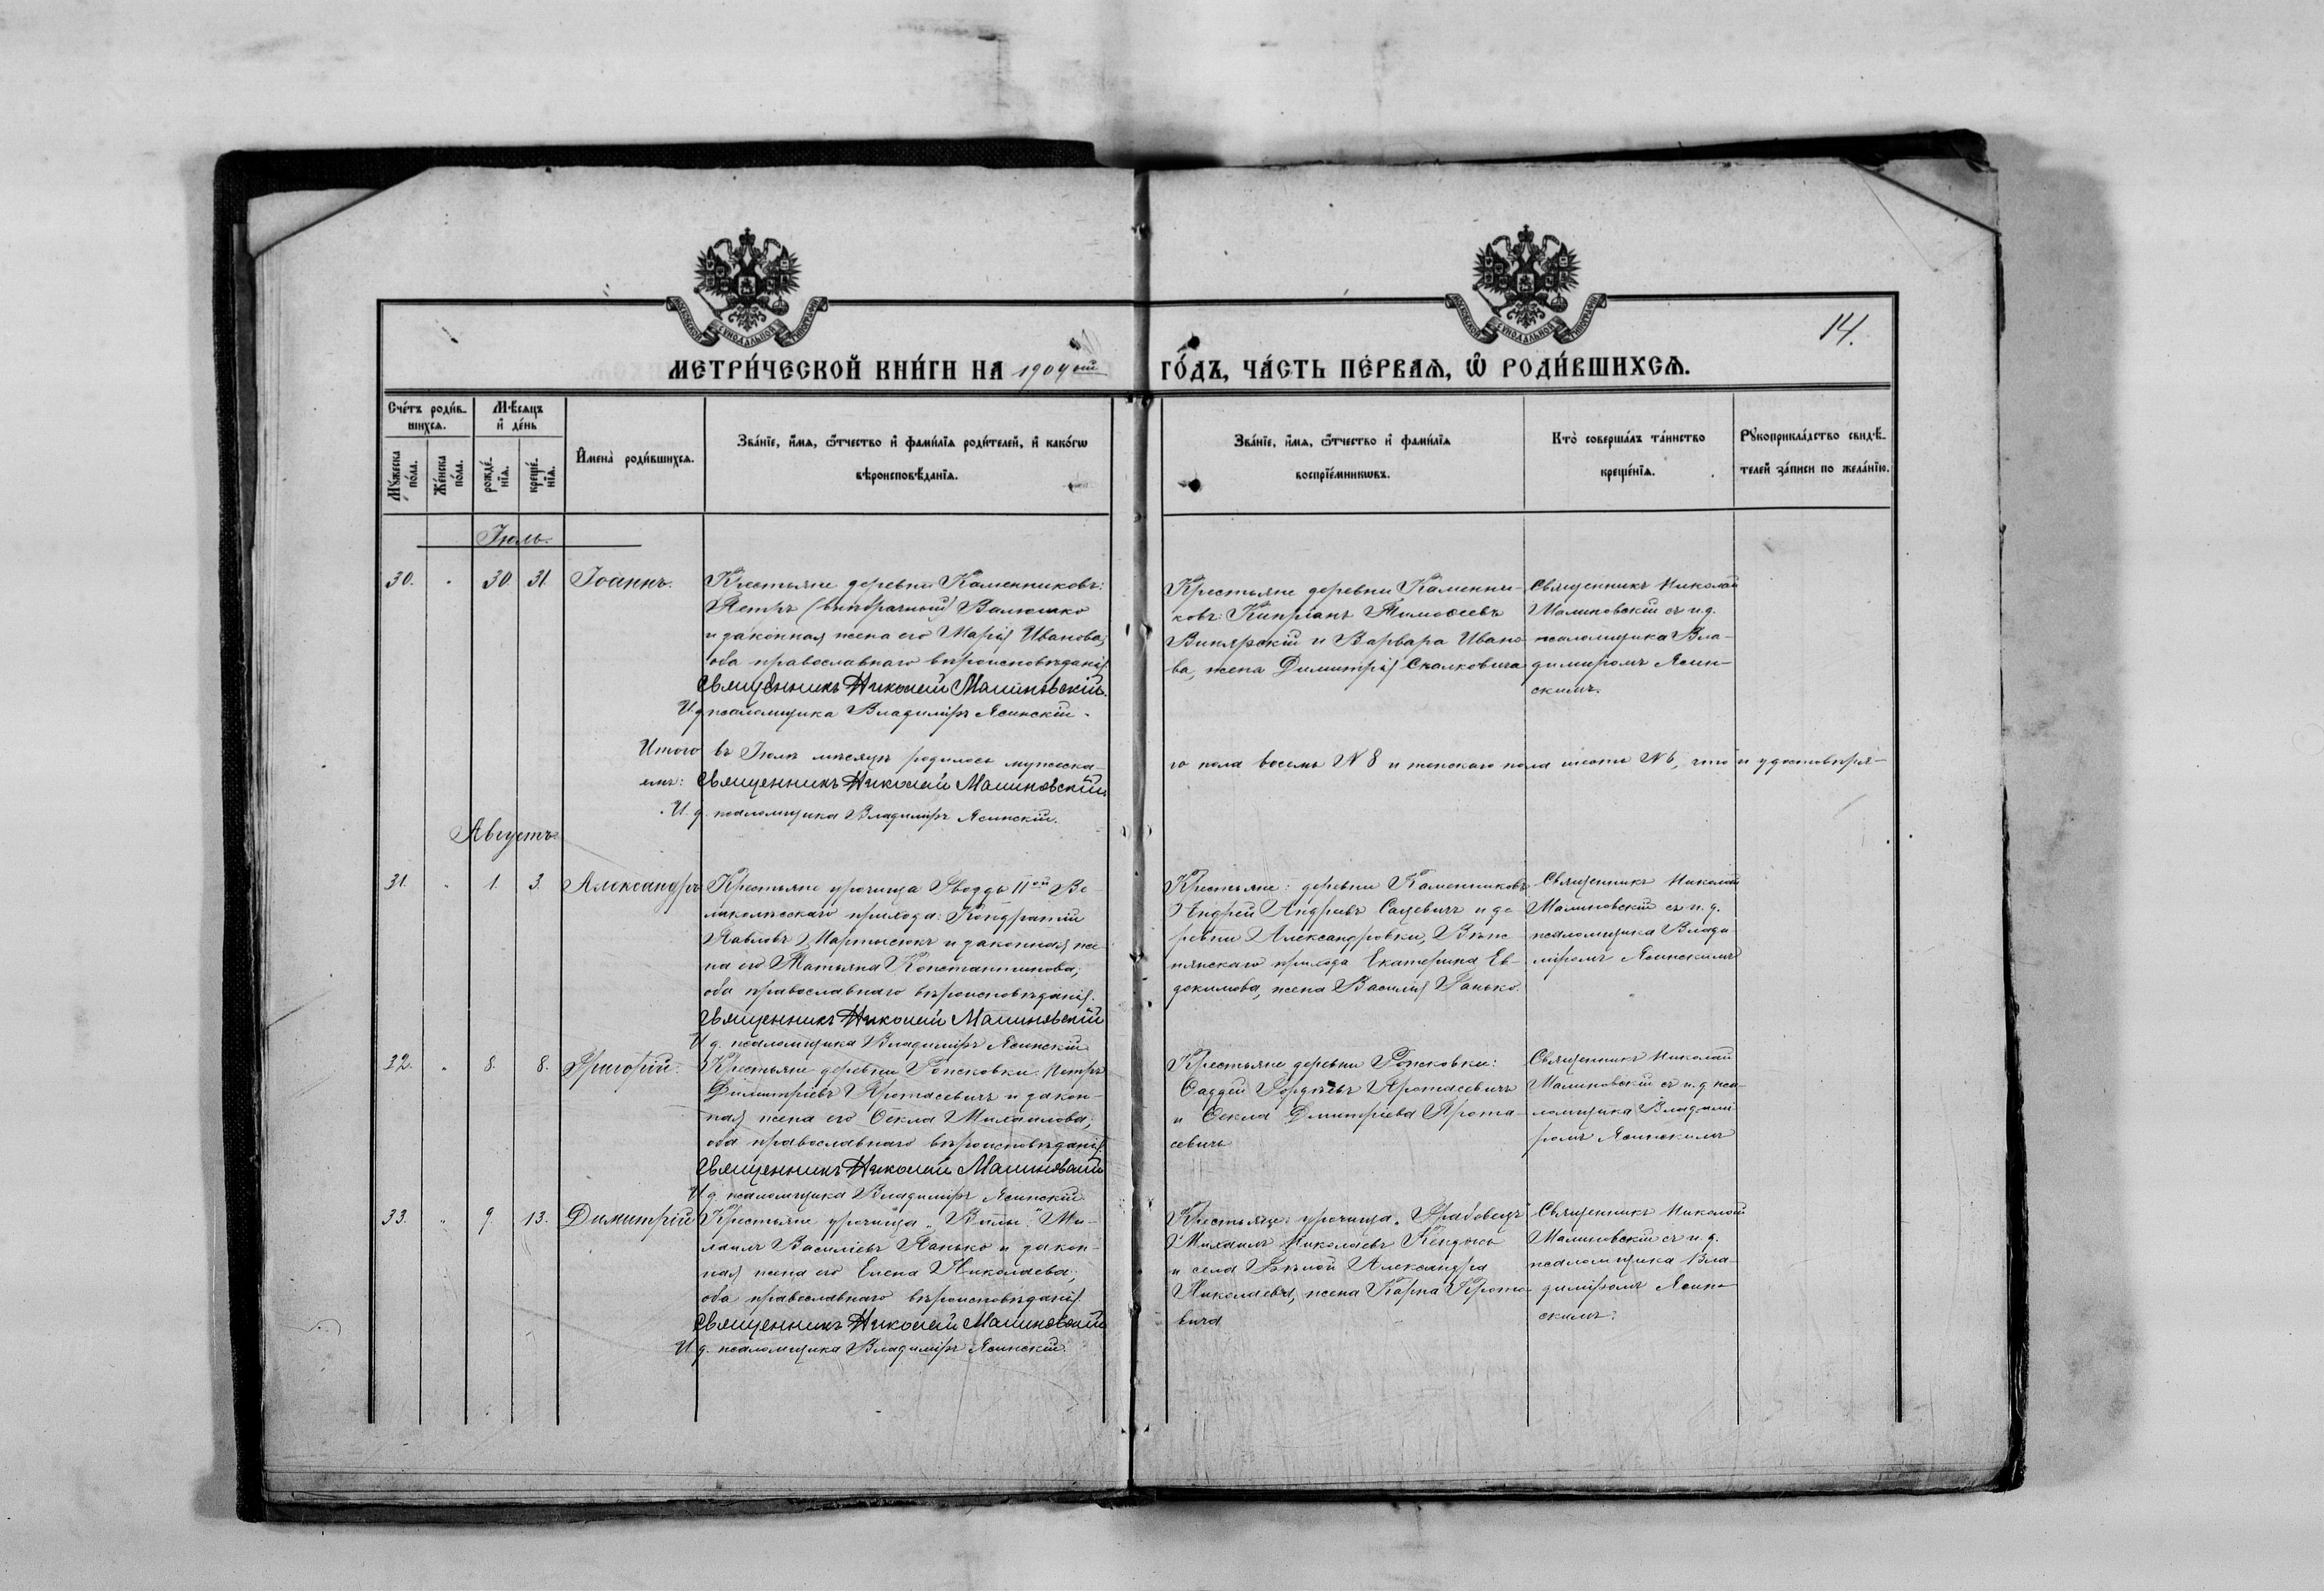 МОСКОВСКОЙ СѴНОДАЛЬНОЙ ТИПОГРАФІИ
МОСКОВСКОЙ СѴНОДАЛЬНОЙ ТИПОГРАФІИ
14.
МЕТРИ́ЧЕСКОЙ КНИ́ГИ НА 1904ый ГО́ДЪ, ЧА́СТЬ ПЕ́РВАѦ, Ѿ РОДИ́ВШИХСѦ.
Сче́тъ роди́в-
шихсѧ.
Мѣ́сѧцъ
и҆ де́нь
И҆мена̀ роди́вшихсѧ.
Зва́нїе, и҆́мѧ, ѻ҆́тчество и҆ фами́лїѧ роди́телей, и҆ како́гѡ
вѣроисповѣ́данїѧ.
Зва́нїе, и҆́мѧ, ѻ҆́тчество и҆ фами́лїѧ
воспрїе́мникѡвъ.
Кто̀ соверша́лъ та́инство
креще́нїѧ.
Рꙋкоприкла́дство свидѣ́-
телей за́писи по жела́нїю.
Мꙋ́жеска
по́ла.
Же́нска
по́ла.
рожде́-
нїѧ.
креще́-
нїѧ.
Іюль.
30. " 30. 31. Іоаннъ.
Крестьяне деревни Каменниковъ:
Петръ (внѣбрачный) Валюшко
и законная жена его Марія Иванова,
оба православнаго вѣроисповѣданія.
Священникъ Николай Малиновскій.
И д псаломщика Владиміръ Ясинскій.
Крестьяне деревни Каменни-
ковъ: Кипріанъ Тимоѳеевъ
Винярскій и Варвара Ивано-
ва, жена Димитрія Скалковича
Священникъ Николай
Малиновскій съ и.д.
псаломщика Вла-
диміромъ Ясин-
скимъ.
Итого въ Іюлѣ мѣсяцѣ родилось мужеска-
го пола восемь № 8 и женскаго пола шесть № 6, что и удостовѣря-
емъ: Священникъ Николай Малиновскій
И. д. псаломщика Владиміръ Ясинскій.
Августъ.
31. " 1. 3. Александръ
Крестьяне урочища Гвоздь IIой Ве-
ликолѣсскаго прихода: Кондратій
Павловъ Мартысюкъ и законная же-
на его Татьяна Константинова,
оба православнаго вѣроисповѣданія.
Священникъ Николай Малиновскій
И д. псаломщика Владиміръ Ясинскій
Крестьяне: деревни Каменниковъ
Андрей Андреевъ Сацевичъ и де-
ревни Александровки,
прихода Екатерина Ев-
докимова, жена Василія Панько.
Священникъ Николай
Малиновскій съ и. д.
псаломщика Влади-
міромъ Ясинскимъ
32. " 8. 8. Григорій.
Крестьяне деревни Петръ
Димитріевъ Протасевичъ и закон-
ная жена его Ѳекла Михаилова,
оба православнаго вѣроисповѣданія.
Священникъ Николай Малиновскій
И д. псаломщика Владиміръ Ясинскій
Крестьяне деревни
Ѳаддей Гордѣевъ Протасевичъ
и Ѳекла Дмитріева Прота-
севичъ
Священникъ Николай
Малиновскій съ и. д пса-
ломщика Владимі-
ромъ Ясинскимъ
33. " 9. 13. Димитрій
Крестьяне урочища „Вилы": Ми-
хаилъ Василіевъ Панько и закон-
ная жена его Елена Николаева,
оба православнаго вѣроисповѣданія.
Священникъ Николай Малиновскій
И д. псаломщика Владиміръ Ясинскій.
Крестьяне: урочища „Грабовецъ"
Михаилъ Николаевъ
и села Бѣлой Александра
Николаева, жена Карпа Крото-
вича
Священникъ Николай
Малиновскій съ и. д.
псаломщика Вла-
диміромъ Ясин-
скимъ.